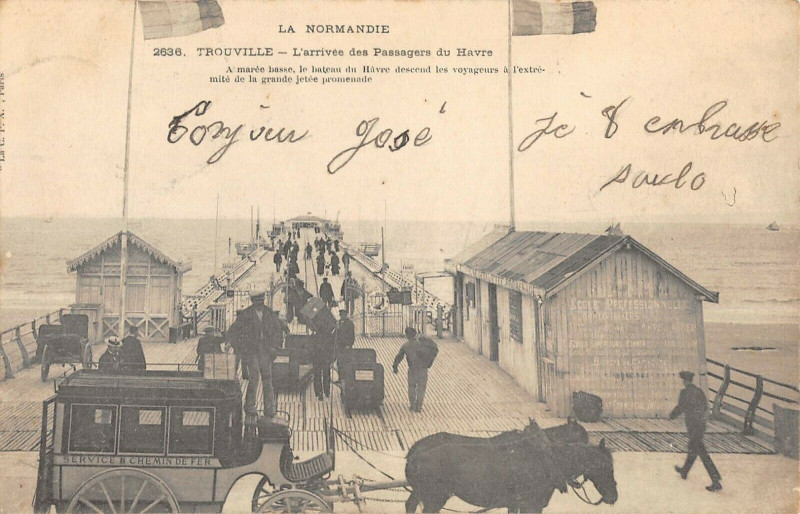 LA NORMANDIE
2636. TROUVILLE — L'arrivée des Passagers du Havre
A marée basse, le bateau du Hâvre descend les voyageurs à l'extré-
mité de la grande jetée promenade
Bonjour José je t embrasse
paulo
SERVICE DU CHEMIN DE FER